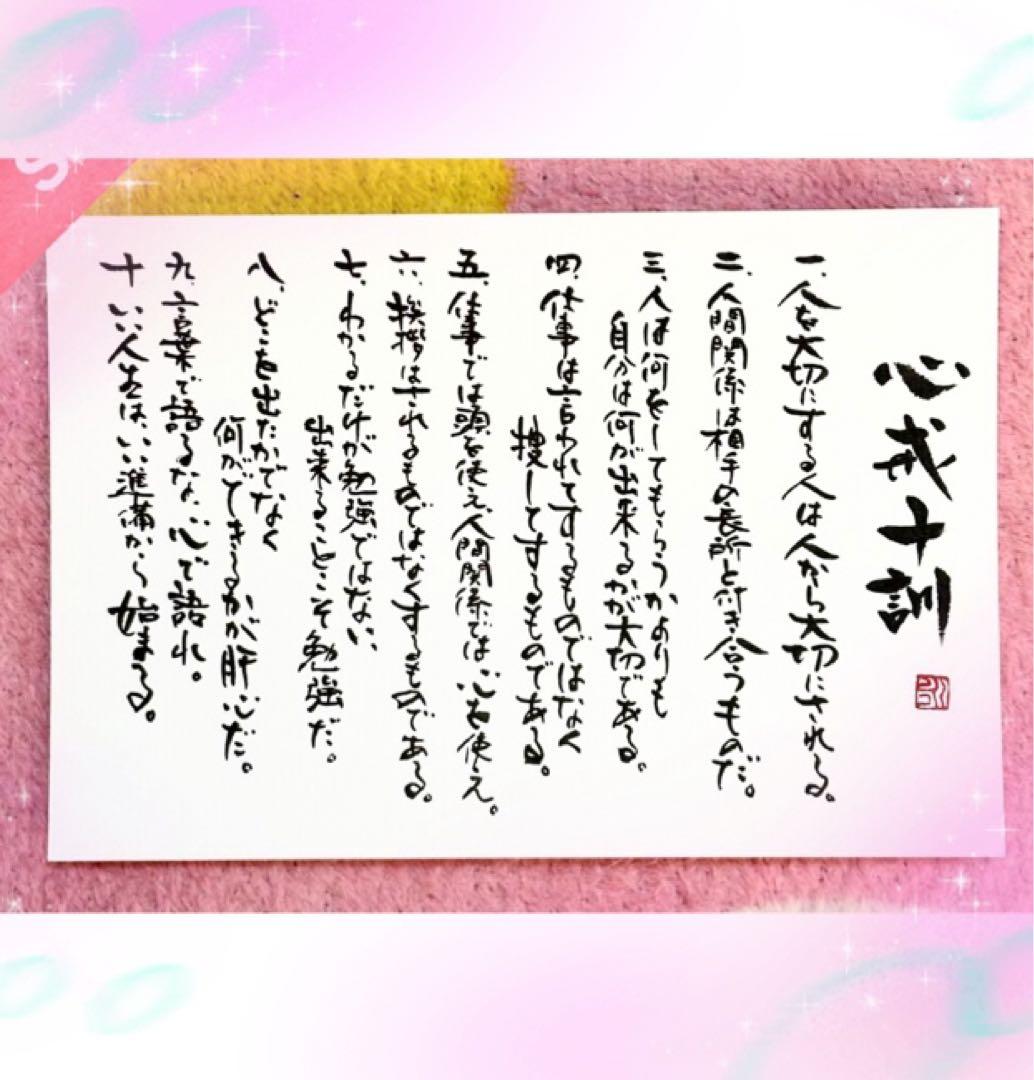 心戒十訓
一、人を大切にする人は人から大切にされる。
二、人間関係は相手の長所と付き合うものだ。
三、人は何をしてもらうかよりも
自分は何が出来るかが大切である。
四、仕事は言われてするものではなく
捜してするものである。
五、仕事では頭を使え、人間関係では心を使え。
六、挨拶はされるものではなくするものである。
七、わかるだけが勉強ではない、
出来ることこそ勉強だ。
八、どこを出たかでなく
何ができるかが肝心だ。
九、言葉で語るな、心で語れ。
十、いい人生は、いい準備から始まる。